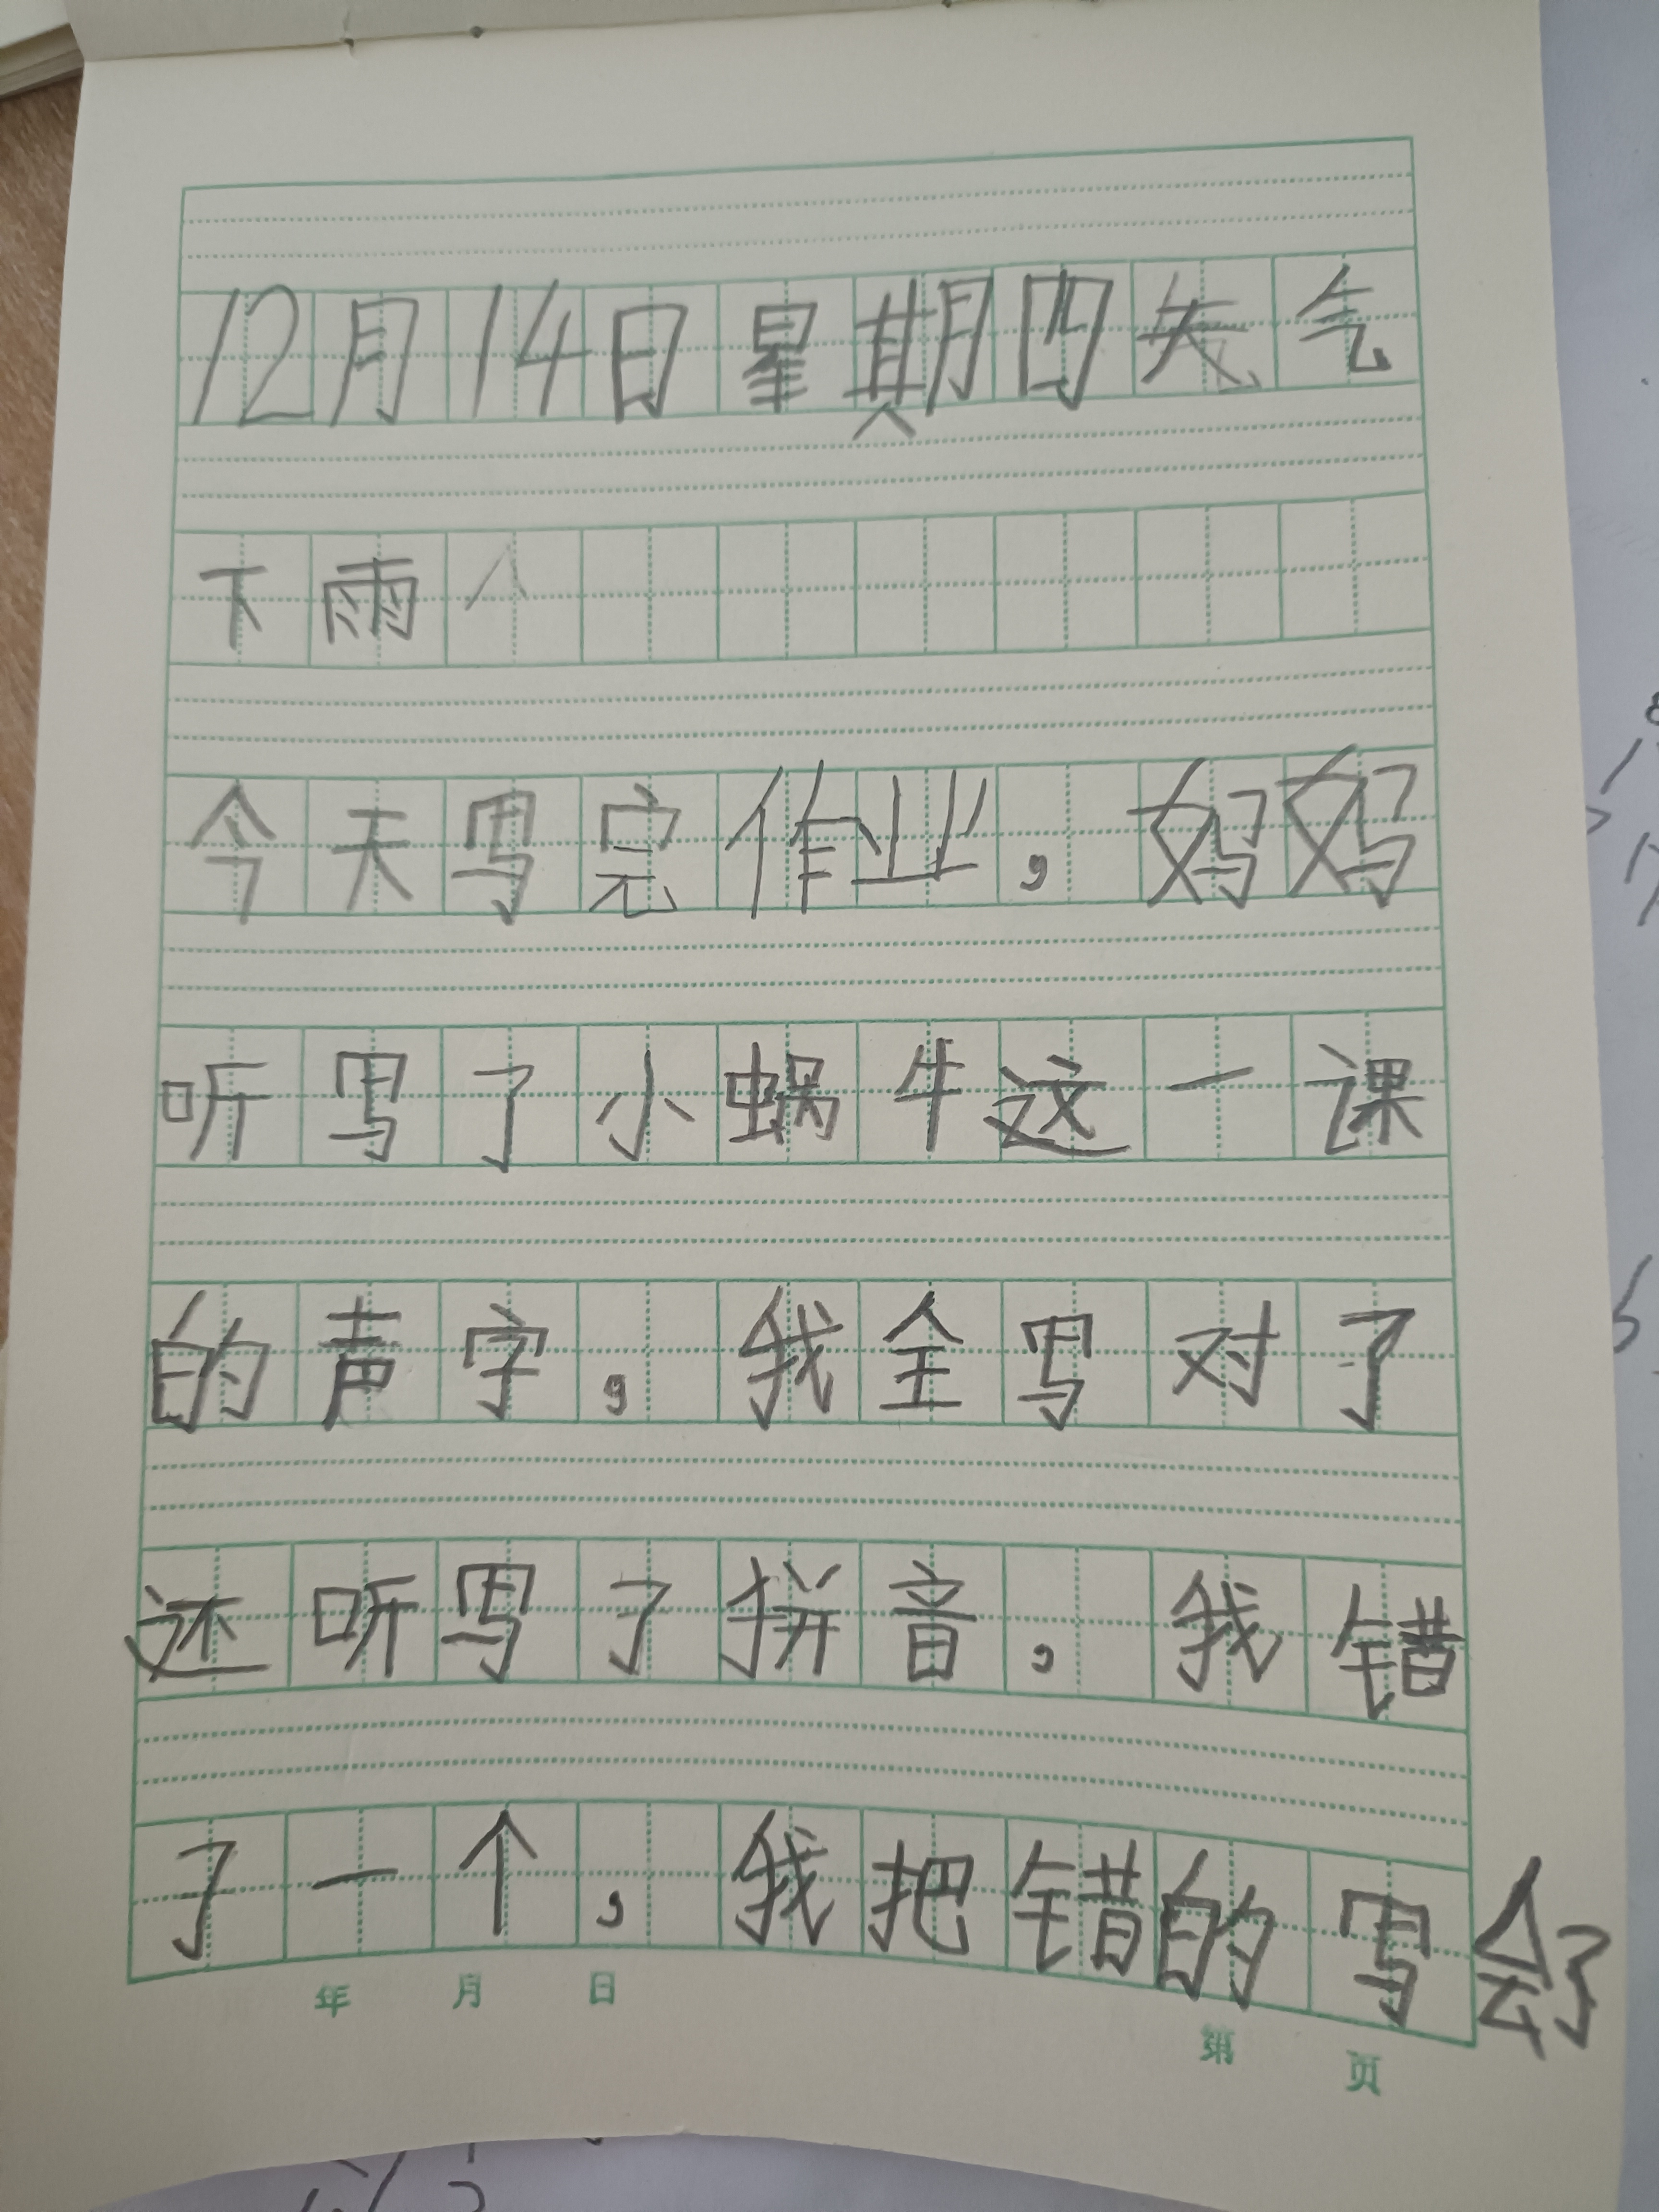 12月14日星期四天气
下雨
今天写完作业，妈妈
听写了小蜗牛这一课
的声字，我全写对了
还听写了拼音，我错
了一个，我把错的写会了
年 月 日
第 页